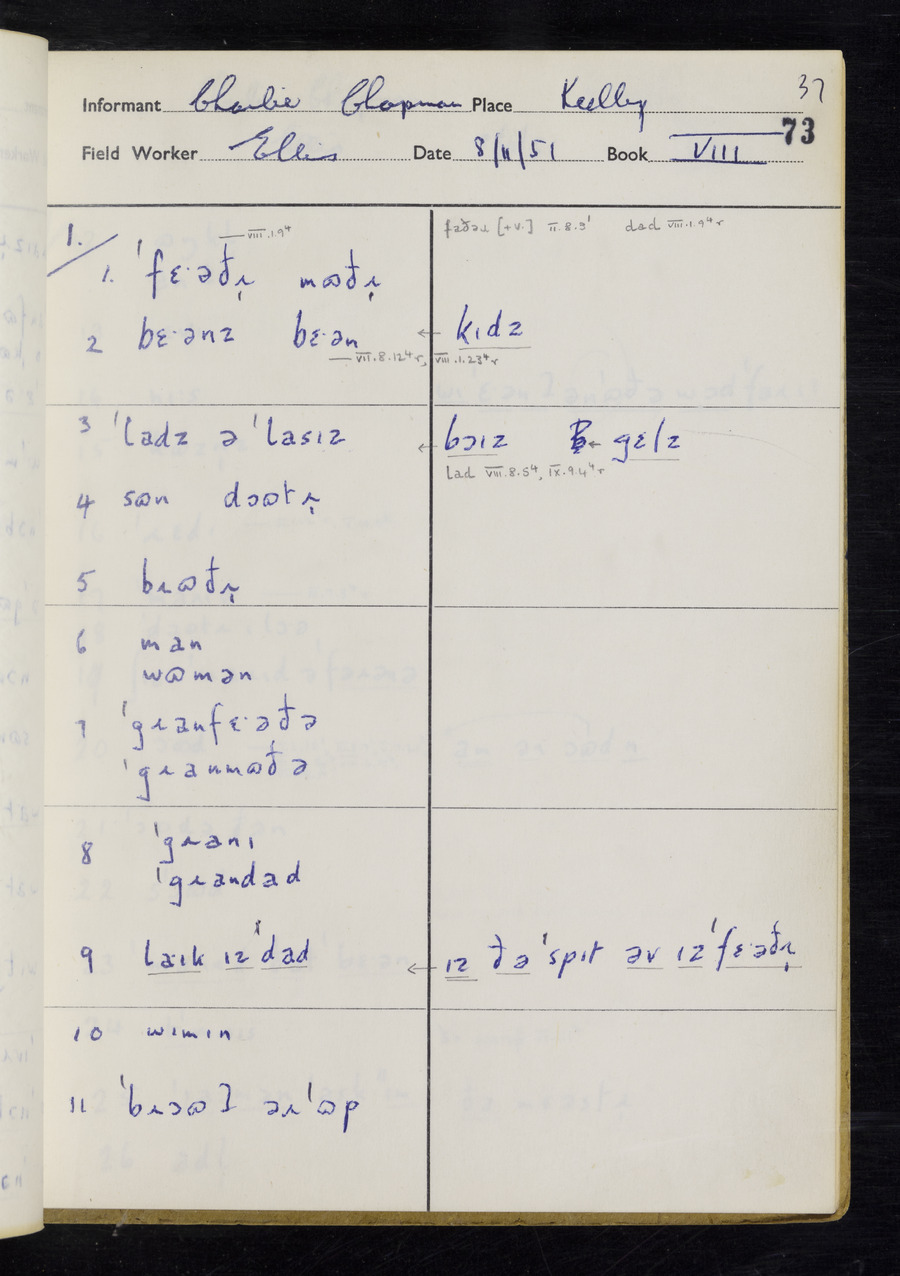 37
Informant Charlie Chapman Place Keelby
73
Field Worker Ellis Date 8/11/51 Book VIII
1.
— VIII.1.9⁴
faðəɹ [+V.] II.8.5¹ dad VIII.1.9⁴r
1. ˈfɛ·əðɹ̩ mɷðɹ̩
2 bɛ·ənz bɛ·ən ← kɪdz
— VII.8.12⁴r, VIII.1.23⁴r
3 ˈladz ə ˈlasɪz ← bɔɪz ← gɛlz
lad VIII.8.5⁴, IX.9.4⁴r
4 sɷn dɔɷtɹ̩
5 bɹɷðɹ̩
6 man
wɷmən
7 ˈgɹanfɛ·əðə
ˈgɹanmɷðə
8 ˈgɹanɪ
ˈgɹandad
9 laɪk ɪz ˈdad ← ɪz ðə ˈspɪt əv ɪz ˈfɛ·əðɹ̩
10 wɪmɪn
11 ˈbɹɔɷʔ əɹ ˈɷp